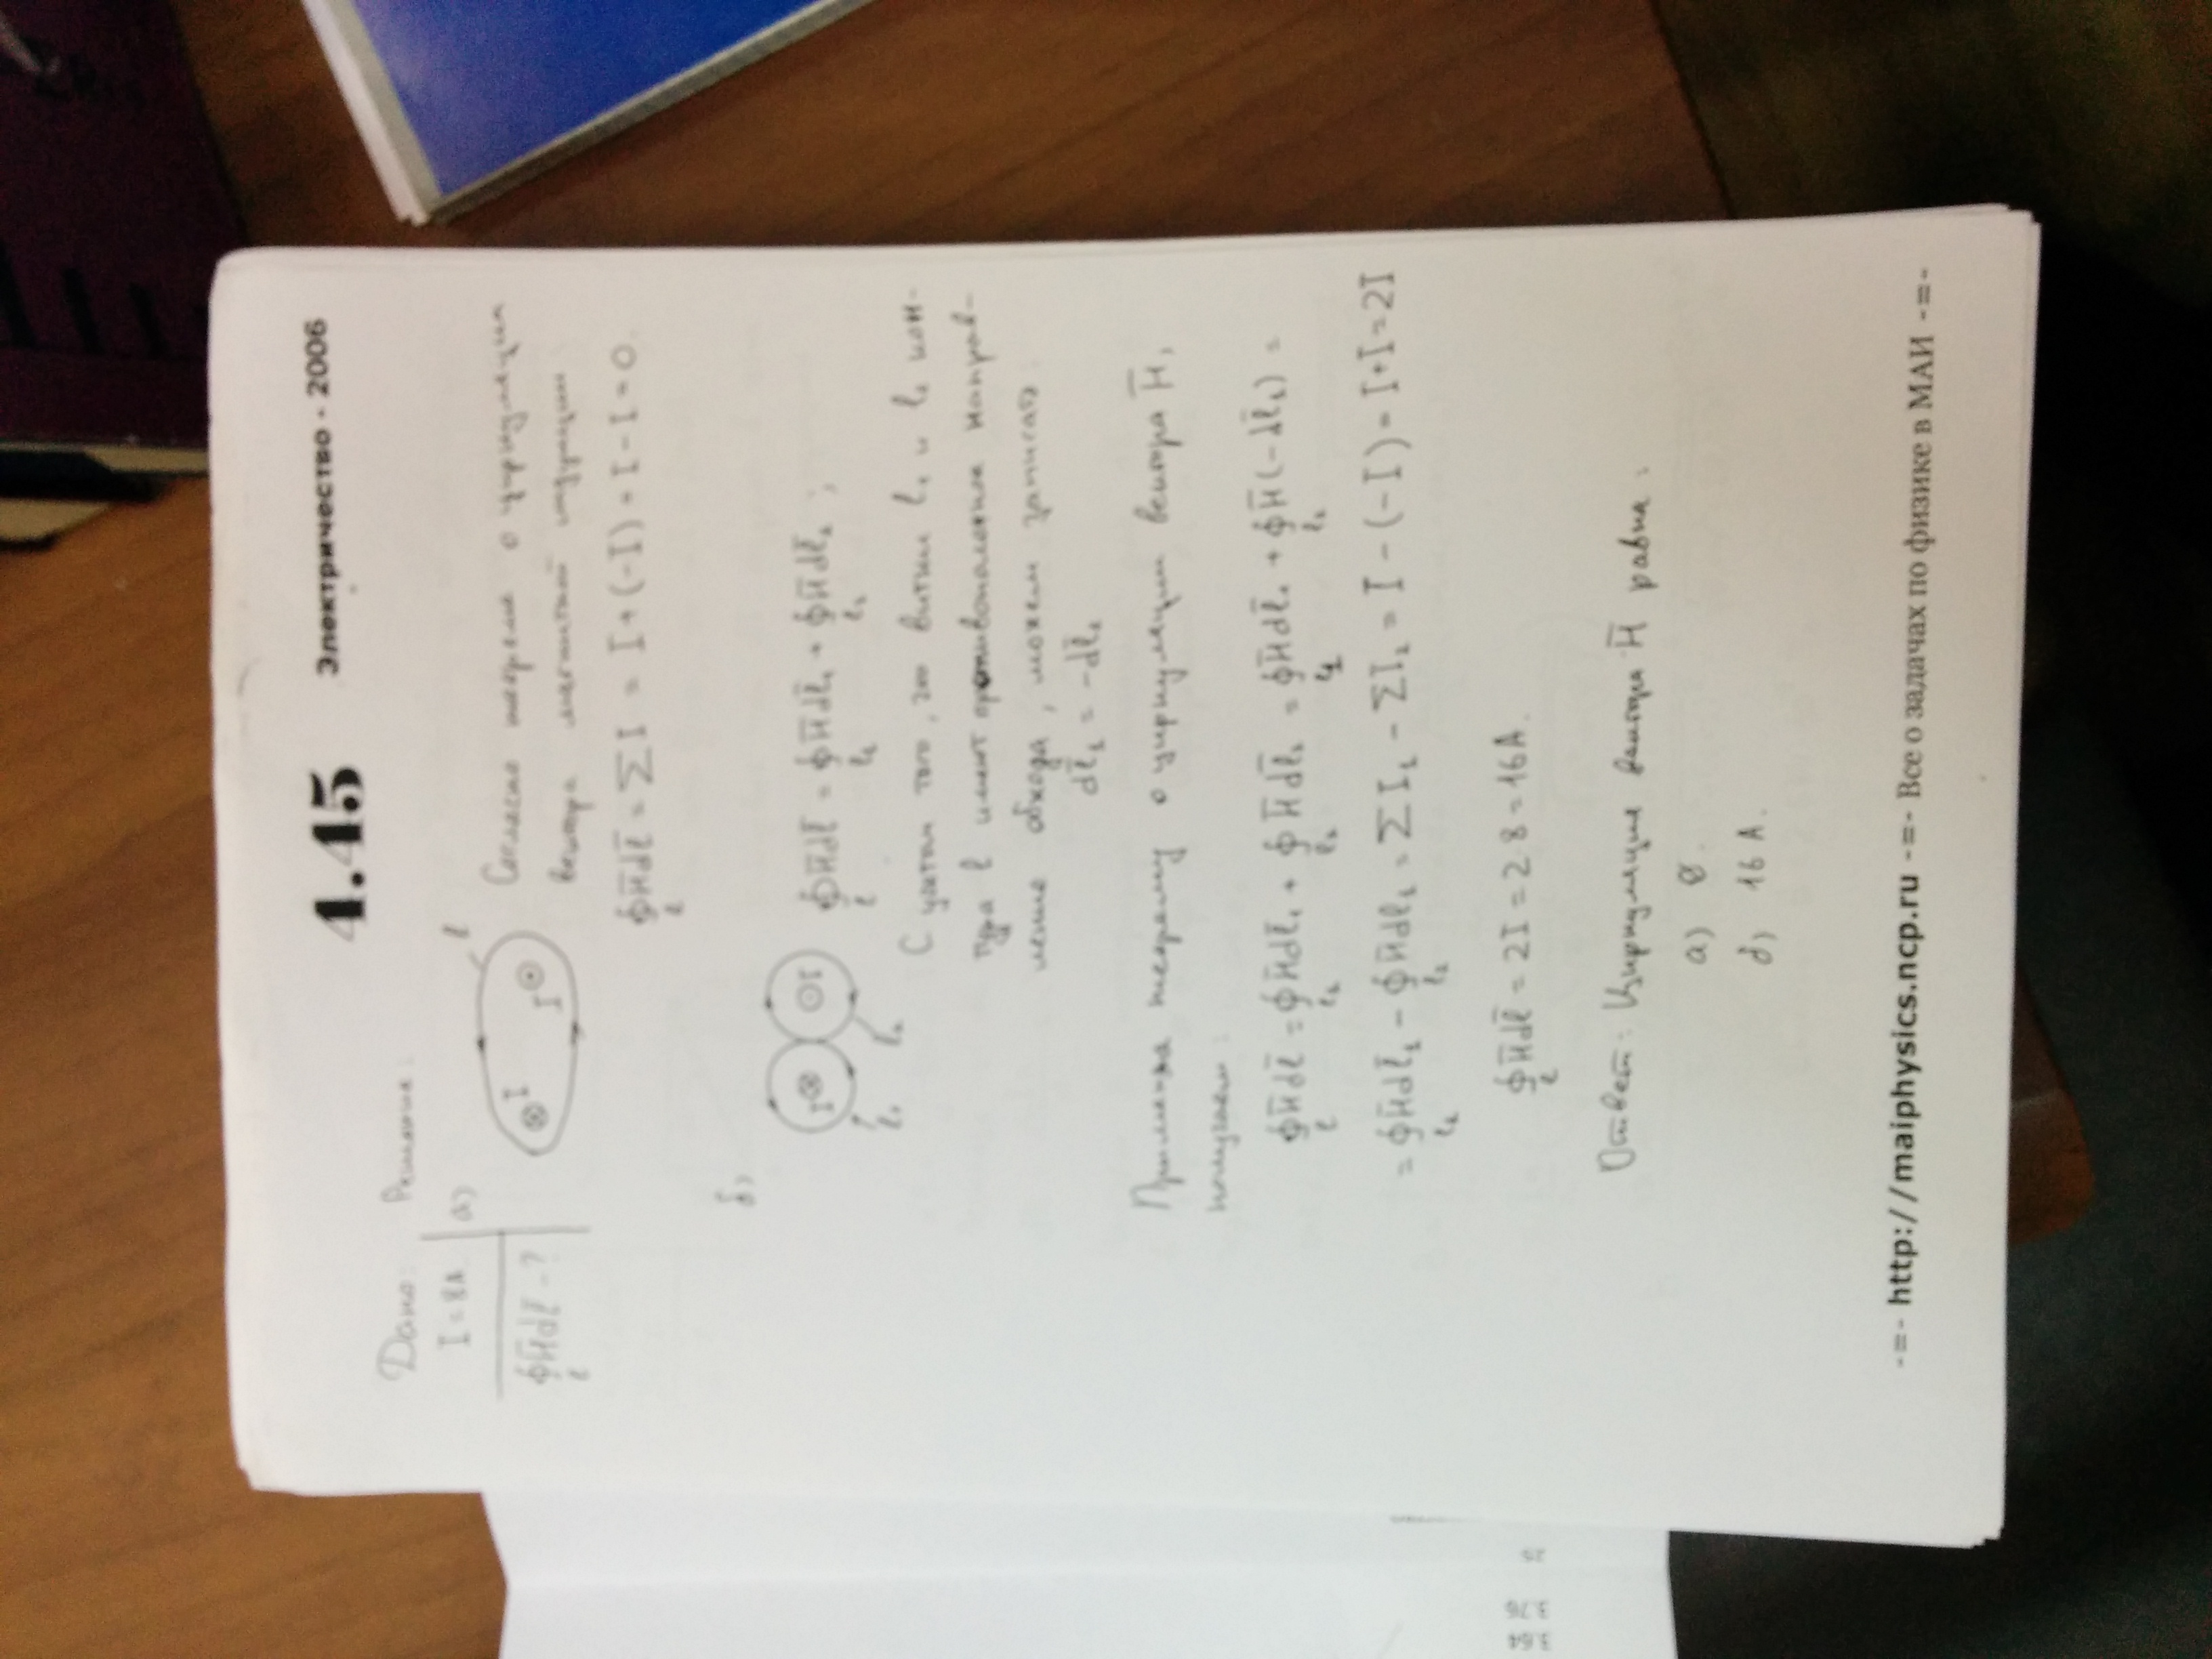 4.45 Электричество • 2006
Дано: Решение:
I = 8A a)
∮H̅dl̅ - ?
l
l
⊗ I I ⊙
Согласно теореме о циркуляции
вектора магнитной индукции
∮H̅dl̅ = ∑I = I + (-I) = I - I = 0.
l
б)
I ⊗ ⊙ I
l₁ l₂
∮H̅dl̅ = ∮H̅dl̅₁ + ∮H̅dl̅₂ ;
l l₁ l₂
С учетом того, что витки l₁ и l₂ кон-
тура l имеют противоположные направ-
ления обхода, можем записать:
dl̅₂ = -dl̅₁
Применяя теорему о циркуляции вектора H̅,
получаем:
∮H̅dl̅ = ∮H̅dl̅₁ + ∮H̅dl̅₂ = ∮H̅dl̅₁ + ∮H̅(-dl̅₂) =
= ∮H̅dl̅₁ - ∮H̅dl̅₂ = ∑I₁ - ∑I₂ = I - (-I) = I + I = 2I
∮H̅dl̅ = 2I = 2·8 = 16A.
l
Ответ: Циркуляция вектора H̅ равна:
a) 0.
б) 16 A.
-=- http://maiphysics.ncp.ru -=- Все о задачах по физике в МАИ -=-